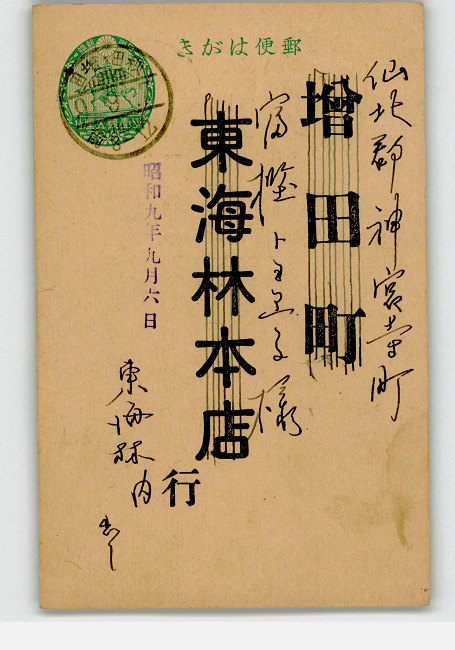 きがは便郵
仙北郡神宮寺町
増田町
富樫トヨゑ様
東海林本店
行
昭和九年九月六日
東海林内